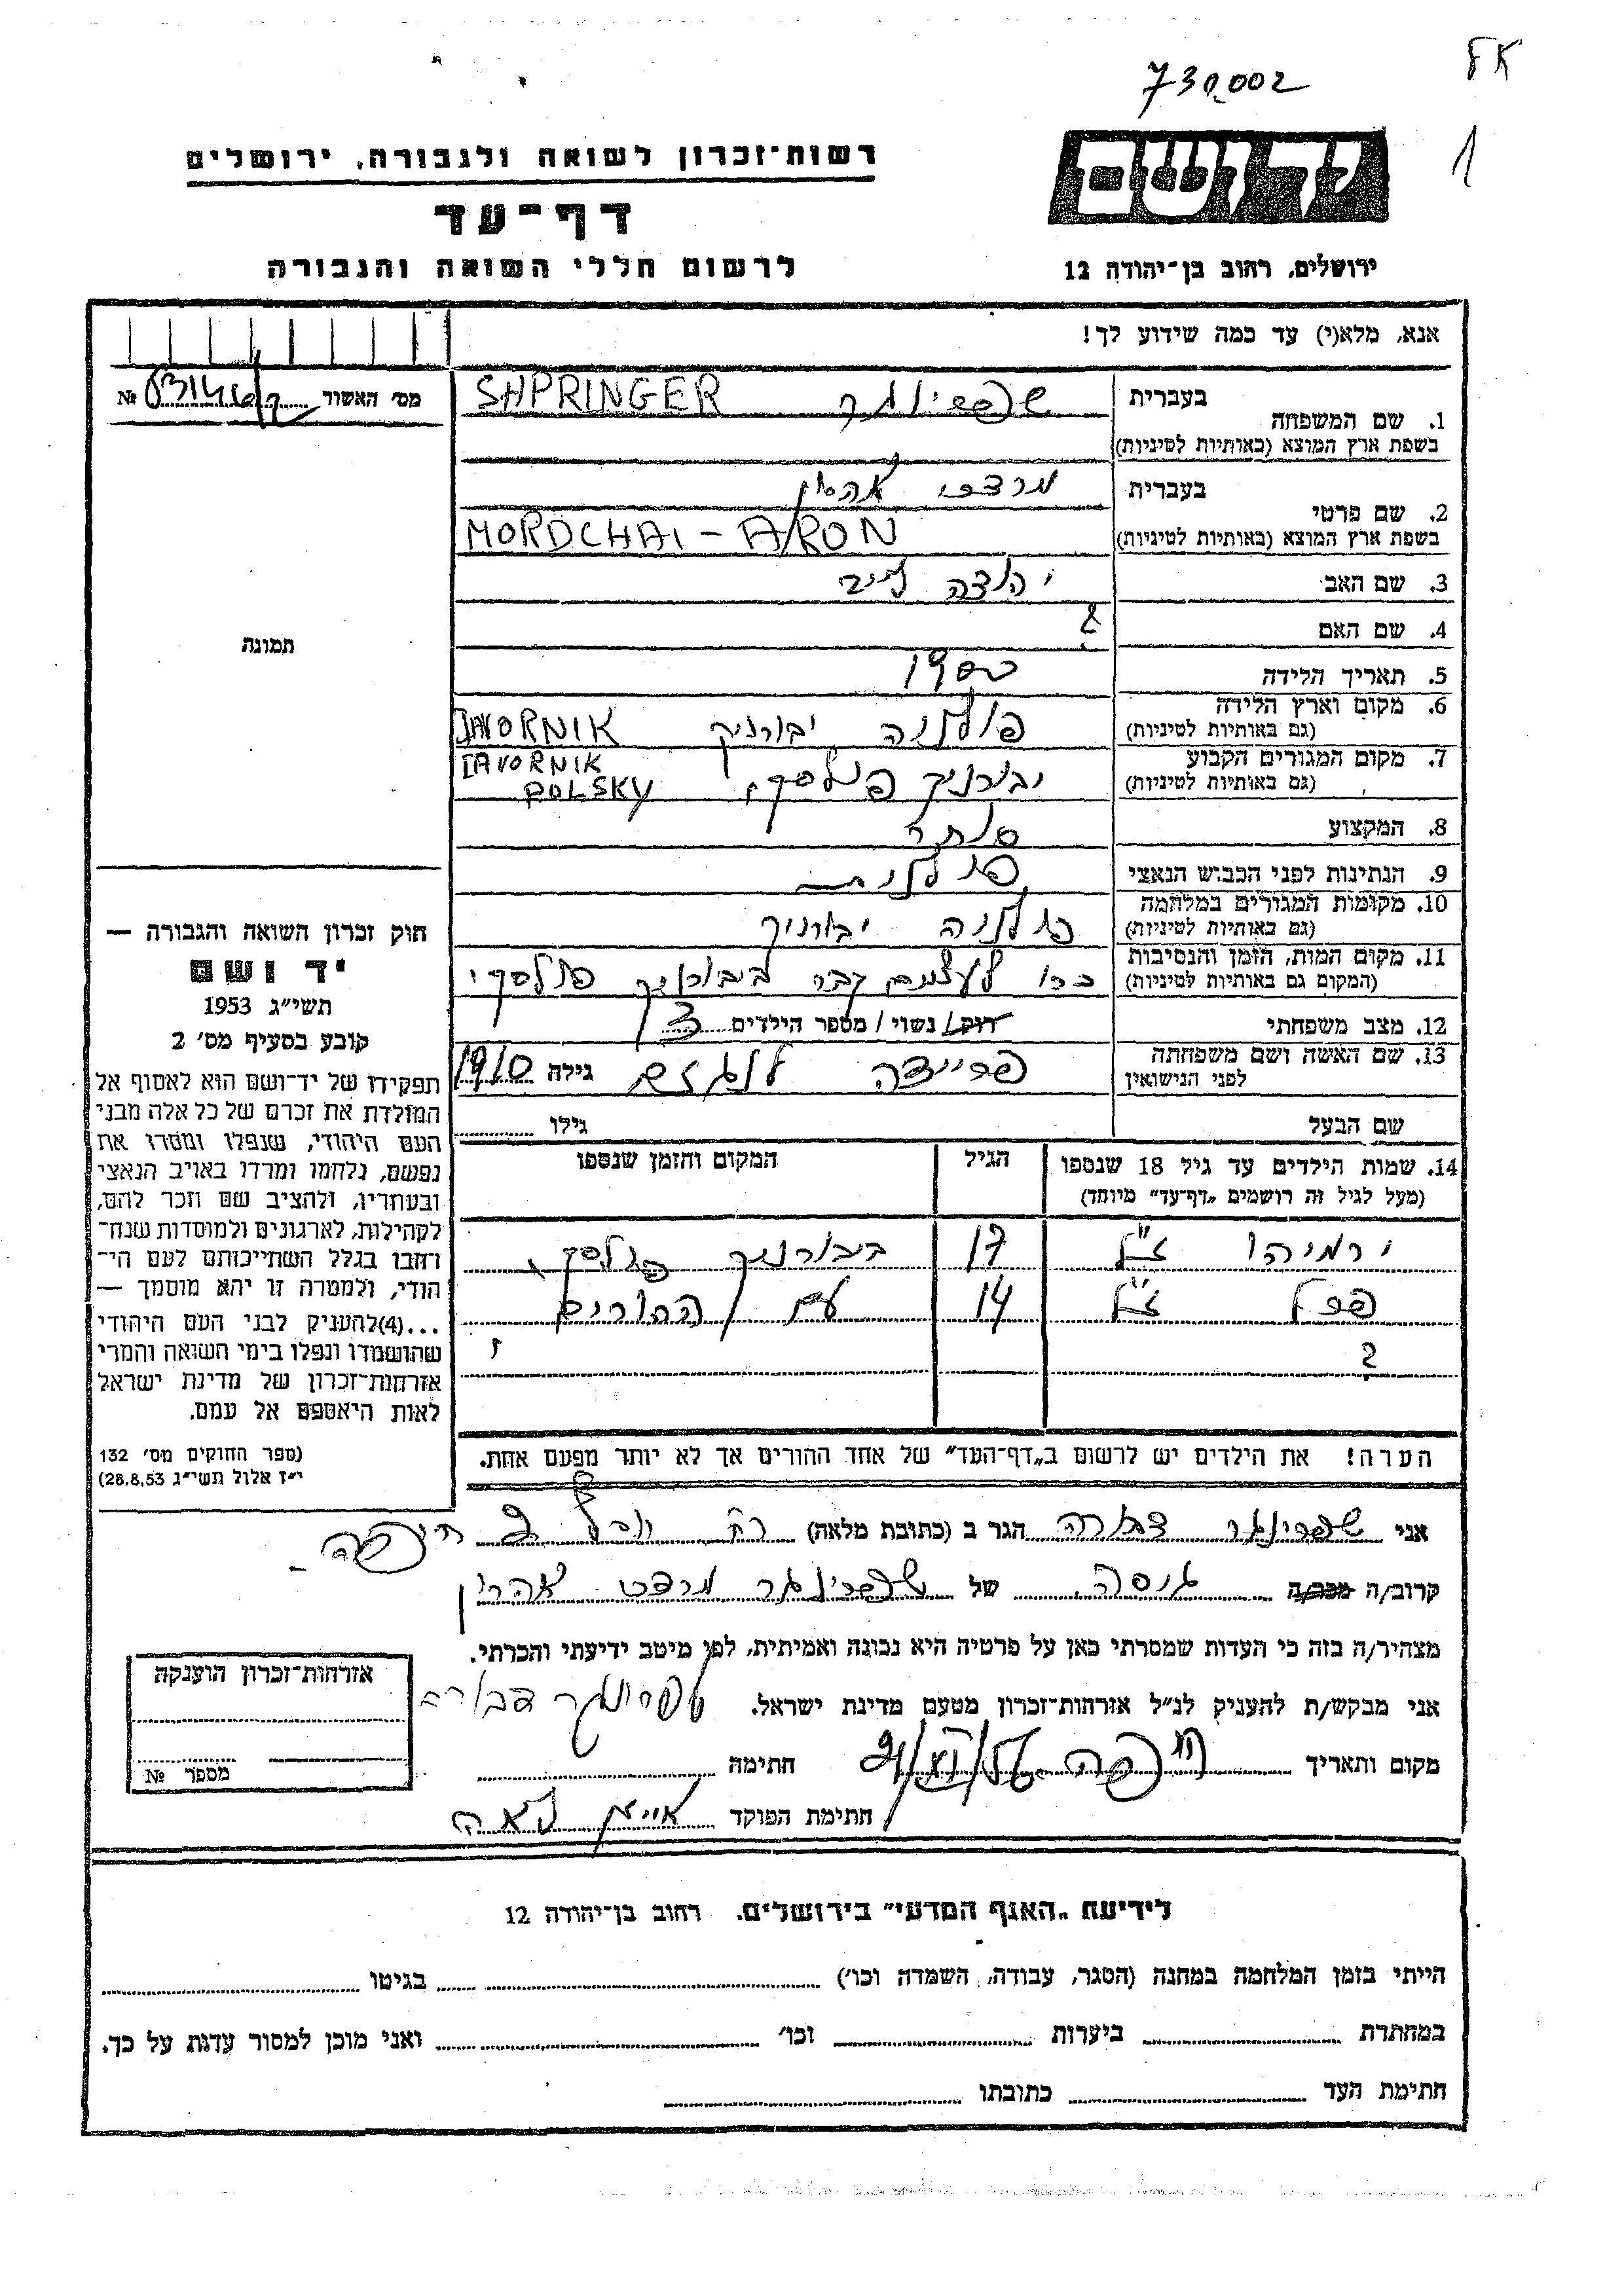 730.002
רשות־זכרון לשואה ולגבורה, ירושלים
דף־עד
לרשום חללי השואה והגבורה
ידושם
ירושלים, רחוב בן־יהודה 12
אנא, מלא(י) עד כמה שידוע לך!
מס׳ האשור № 
1. שם המשפחה
בעברית
שפרינגר SHPRINGER
בשפת ארץ המוצא (באותיות לטיניות)
2. שם פרטי
בעברית
מרדכי אהרן
בשפת ארץ המוצא (באותיות לטיניות)
MORDCHAI - ARON
3. שם האב
יהודה לייב
4. שם האם
?
5. תאריך הלידה
1900
6. מקום וארץ הלידה
(גם באותיות לטיניות)
פולניה יבורניק JAVORNIK
7. מקום המגורים הקבוע
(גם באותיות לטיניות)
יבורניק פולסקי IAVORNIK
POLSKY
8. המקצוע
סוחר
9. הנתינות לפני הכבוש הנאצי
פולנית
10. מקומות המגורים במלחמה
(גם באותיות לטיניות)
פולניה יבורניק
11. מקום המות, הזמן והנסיבות
(המקום גם באותיות לטיניות)
כרו לעצמם קבר ביבורניק פולסקי
12. מצב משפחתי
רוק/ נשוי/ מספר הילדים 3
13. שם האשה ושם משפחתה
לפני הנישואין
פריידה גילה 1910
שם הבעל
גילו
14. שמות הילדים עד גיל 18 שנספו
(מעל לגיל זה רושמים „דף־עד״ מיוחד)
הגיל
המקום והזמן שנספו
ירמיהו ז״ל 17 ביבורניק פולסקי
פרל ז״ל 14 עם ההורים
?
הערה! את הילדים יש לרשום ב„דף־העד״ של אחד ההורים אך לא יותר מפעם אחת.
תמונה
חוק זכרון השואה והגבורה —
יד ושם
תשי״ג 1953
קובע בסעיף מס׳ 2
תפקידו של יד־ושם הוא לאסוף אל
המולדת את זכרם של כל אלה מבני
העם היהודי, שנפלו ומסרו את
נפשם, נלחמו ומרדו באויב הנאצי
ובעוזריו, ולהציב שם וזכר להם,
לקהילות, לארגונים ולמוסדות שנח־
רבו בגלל השתייכותם לעם הי־
הודי, ולמטרה זו יהא מוסמך —
...(4)להעניק לבני העם היהודי
שהושמדו ונפלו בימי השואה והמרי
אזרחות־זכרון של מדינת ישראל
לאות היאספם אל עמם.
(ספר החוקים מס׳ 132
י״ז אלול תשי״ג 28.8.53)
אני שפרינגר דבורה הגר ב (כתובת מלאה) רח חיפה
קרוב/ה מכר/ה גיסה של שפרינגר מרדכי אהרן
מצהיר/ה בזה כי העדות שמסרתי כאן על פרטיה היא נכונה ואמיתית, לפי מיטב ידיעתי והכרתי.
אני מבקש/ת להעניק לנ״ל אזרחות־זכרון מטעם מדינת ישראל.
שפרינגר דבורה
מקום ותאריך חיפה חתימה
חתימת הפוקד לאה
אזרחות־זכרון הוענקה
מספר №
לידיעת „האגף המדעי״ בירושלים. רחוב בן־יהודה 12
הייתי בזמן המלחמה במחנה (הסגר, עבודה, השמדה וכו׳) בגיטו
במחתרת ביערות וכו׳ ואני מוכן למסור עדות על כך.
חתימת העד כתובתו